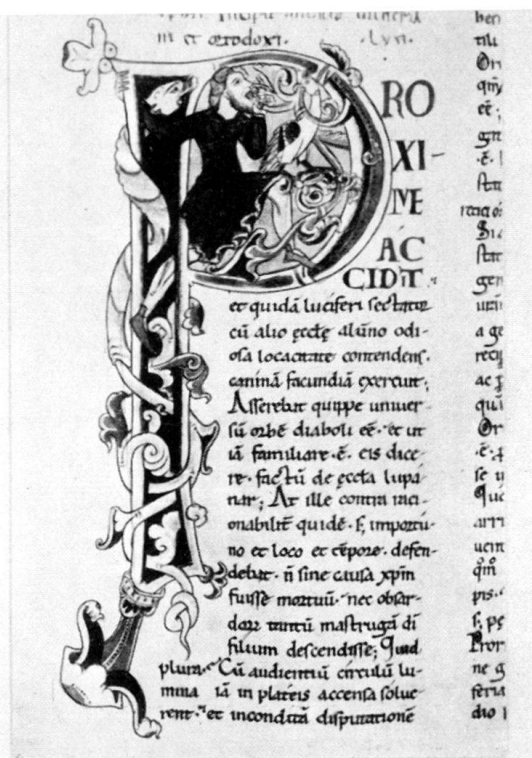 ni et ortodoxi.
PRO
XI-
ME
AC
CIDIT.
et quidā luciferi sectator
cū alio ęcclę alūno odi-
osa locacitate contendens.
caninā facundiā exercuit;
Asserebat quippe univer-
sū orbē diaboli eē. et ut
iā familiare .ē. eis dice-
re. factū de ęccla lupa-
nar; At ille contra raci-
onabilit̄ quidē. s; importu-
no et loco et tēpore. defen-
debat. ñ sine causa xp̄m
fuisse mortuū. nec ob sar-
dorū tantū mastrugā dī
filium descendisse; Quid
plura. Cū audientiū circulū lu-
mina iā in plateis accensa solue-
rent. et inconditā disputationē
ben
tili
Ori
eē;
gn
.ē. l
stat
Si
stat
gen
a ge
reci
qui
Or
se u
Que
arri
ucin
qm̄
pis.
s; pę
Pror
ne g
feria
dio